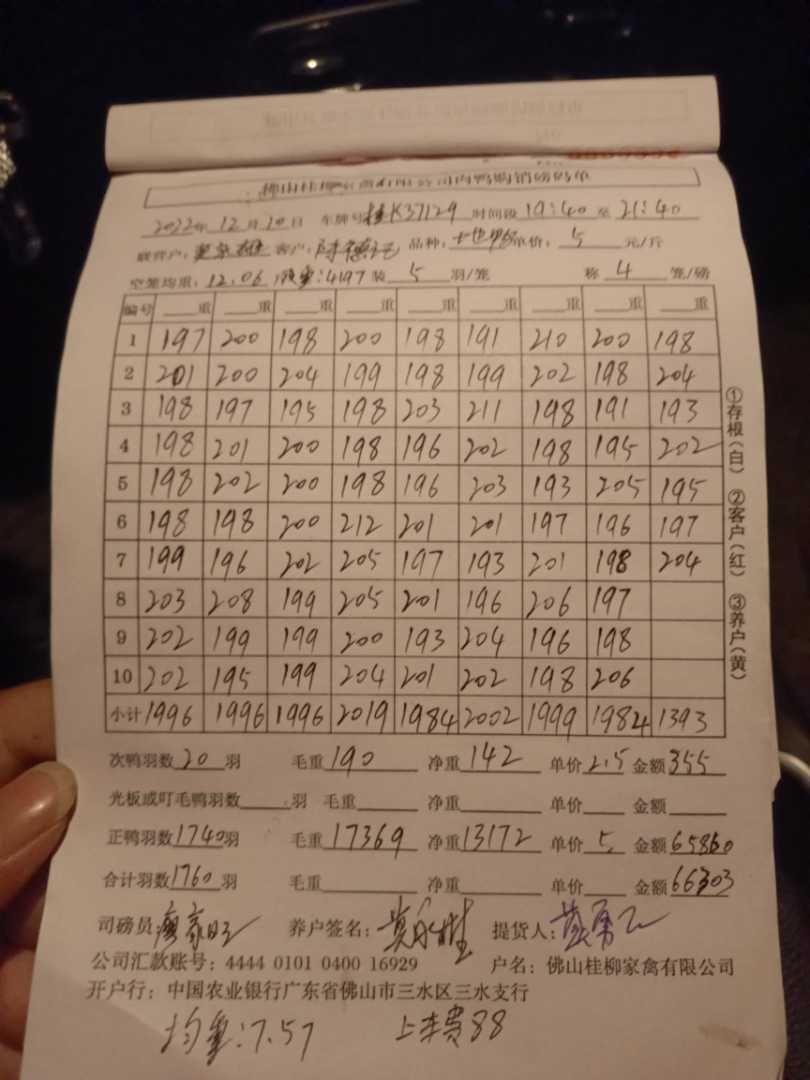 佛山桂柳家禽有限公司肉鸭购销磅码单
2022年 12月 10日 车牌号桂K37129 时间段 19:40 至 21:40
联营户: 客户: 品种: 单价: 5 元/斤
空笼均重: 12.06 :4197 装 5 羽/笼 称 4 笼/磅
编号 重 重 重 重 重 重 重 重 重
1 197 200 198 200 198 191 210 200 198
2 201 200 204 199 198 199 202 198 204
3 198 197 195 198 203 211 198 191 193
4 198 201 200 198 196 202 198 195 202
5 198 202 200 198 196 203 193 205 195
6 198 198 200 212 201 201 197 196 197
7 199 196 202 205 197 193 201 198 204
8 203 208 199 205 201 196 206 197
9 202 199 199 200 193 204 196 198
10 202 195 199 204 201 202 198 206
小计 1996 1996 1996 2019 1984 2002 1999 1984 1393
次鸭羽数 20 羽 毛重 190 净重 142 单价 2.5 金额 355
光板或叮毛鸭羽数 羽 毛重 净重 单价 金额
正鸭羽数 1740 羽 毛重 17369 净重 13172 单价 5 金额 65860
合计羽数 1760 羽 毛重 净重 单价 金额 66303
司磅员: 养户签名: 提货人:
公司汇款账号: 4444 0101 0400 16929 户名: 佛山桂柳家禽有限公司
开户行: 中国农业银行广东省佛山市三水区三水支行
均重:7.57 上车费88
①存根(白) ②客户(红) ③养户(黄)